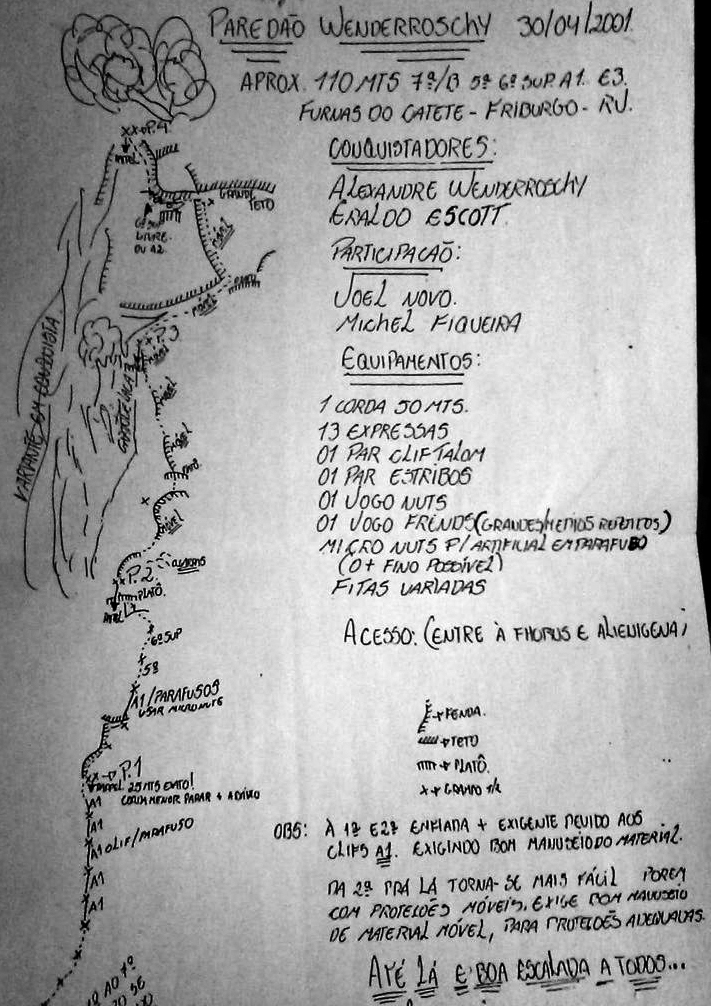 PAREDÃO WENDERROSCHY 30/04/2001.
APROX. 110 MTS 7º/B 5º 6º SUP. A1. E3.
FURNAS DO CATETE - FRIBURGO - RJ.
CONQUISTADORES:
ALEXANDRE WENDERROSCHY
ERALDO ESCOTT.
PARTICIPACÃO:
JOEL NOVO.
MICHEL FIQUEIRA
EQUIPAMENTOS:
1 CORDA 50 MTS.
13 EXPRESSAS
01 PAR CLIF TALOM
01 PAR ESTRIBOS
01 JOGO NUTS
01 JOGO FRENDS (GRANDES/MEDIOS REPETITOS)
MICRO NUTS P/ ARTIFICIAL EM PARAFUSO
(O + FINO POSSÍVEL)
FITAS VARIADAS
ACESSO: (ENTRE À FHORUS E ALIENIGENA)
→ FENDA.
→ TETO
→ PLATÔ.
X → GRAMPO
OBS: À 1ª E 2ª ENFIADA + EXIGENTE DEVIDO AOS
CLIFS A1. EXIGINDO BOM MANUSEIO DO MATERIAL.
DA 2ª PRA LÁ TORNA-SE MAIS FÁCIL POREM
COM PROTECÕES MÓVEIS. EXIGE BOM MANUSEIO
DE MATERIAL MÓVEL, PARA PROTECÕES ADEQUADAS.
ATÉ LÁ E BOA ESCALADA A TODOS...
P.4
GRANDE
TETO
6º SUP
LIVRE
OU A2.
MOVEL
P.3
VARIANTE EM CONQUISTA
MÓVEL
P.2
PLATÔ
6º SUP
5º
A1/PARAFUSOS
USAR MICRO NUTS
P.1
RAPPEL 25 MTS EXATO!
CORDA MENOR PARAR + ABAIXO
A1
A1
A1 CLIF/PARAFUSO
A1
A1
AO 1º
SE